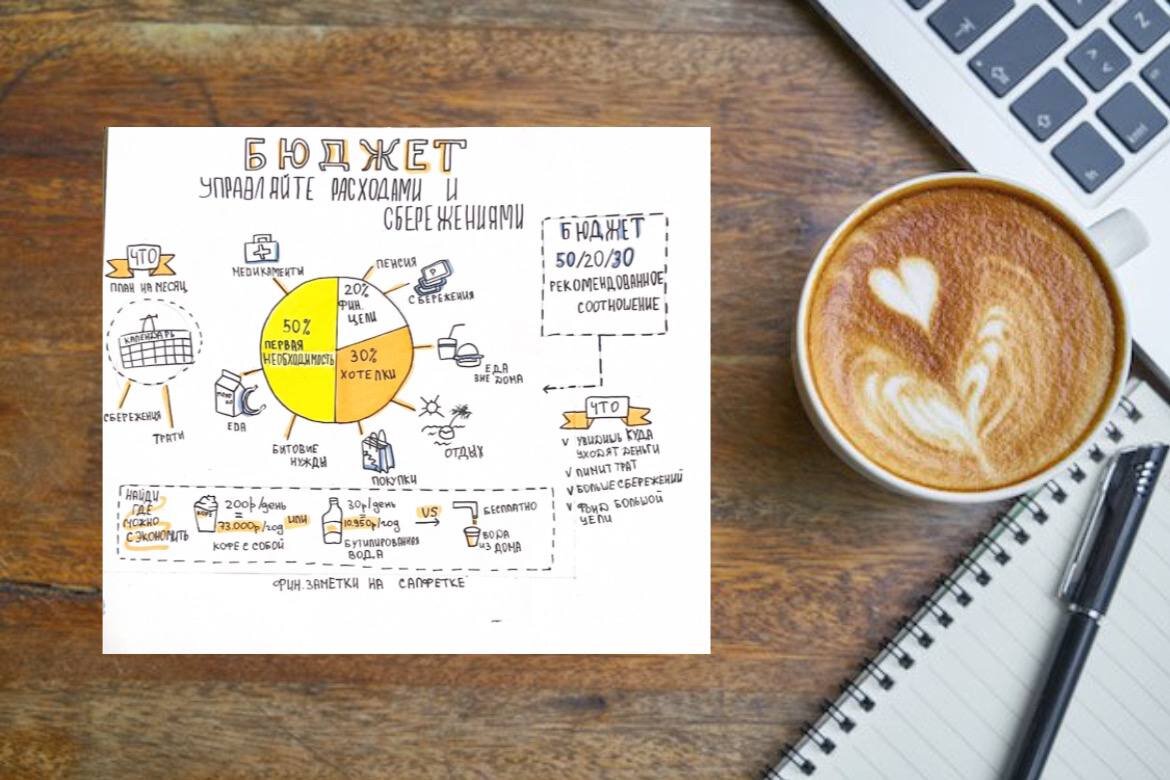 БЮДЖЕТ
УПРАВЛЯЙТЕ РАСХОДАМИ И
СБЕРЕЖЕНИЯМИ
ЧТО
ПЛАН НА МЕСЯЦ
КАЛЕНДАРЬ
СБЕРЕЖЕНИЯ
ТРАТИ
МЕДИКАМЕНТЫ
ПЕНСИЯ
СБЕРЕЖЕНИЯ
20%
ФИН.
ЦЕЛИ
50%
ПЕРВАЯ
НЕОБХОДИМОСТЬ
30%
ХОТЕЛКИ
ЕДА
ВНЕ ДОМА
ОТДЫХ
ПОКУПКИ
БИТОВИЕ
НУЖДЫ
ЕДА
БЮДЖЕТ
50/20/30
РЕКОМЕНДОВАННОЕ
СООТНОШЕНИЕ
ЧТО
√ УВИДИШЬ КУДА
УХОДЯТ ДЕНЬГИ
√ ЛИМИТ ТРАТ
√ БОЛЬШЕ СБЕРЕЖЕНИЙ
√ ФОНД БОЛЬШОЙ
ЦЕЛИ
НАЙДИ
ГДЕ
МОЖНО
СЭКОНОМИТЬ
КОФЕ
200р/день
=
73.000р/год
КОФЕ С СОБОЙ
ИЛИ
30р/день
=
10.950р/год
БУТИЛИРОВАННАЯ
ВОДА
VS
БЕСПЛАТНО
ВОДА
ИЗ ДОМА
ФИН.ЗАМЕТКИ НА САЛФЕТКЕ
Z
> <
fn